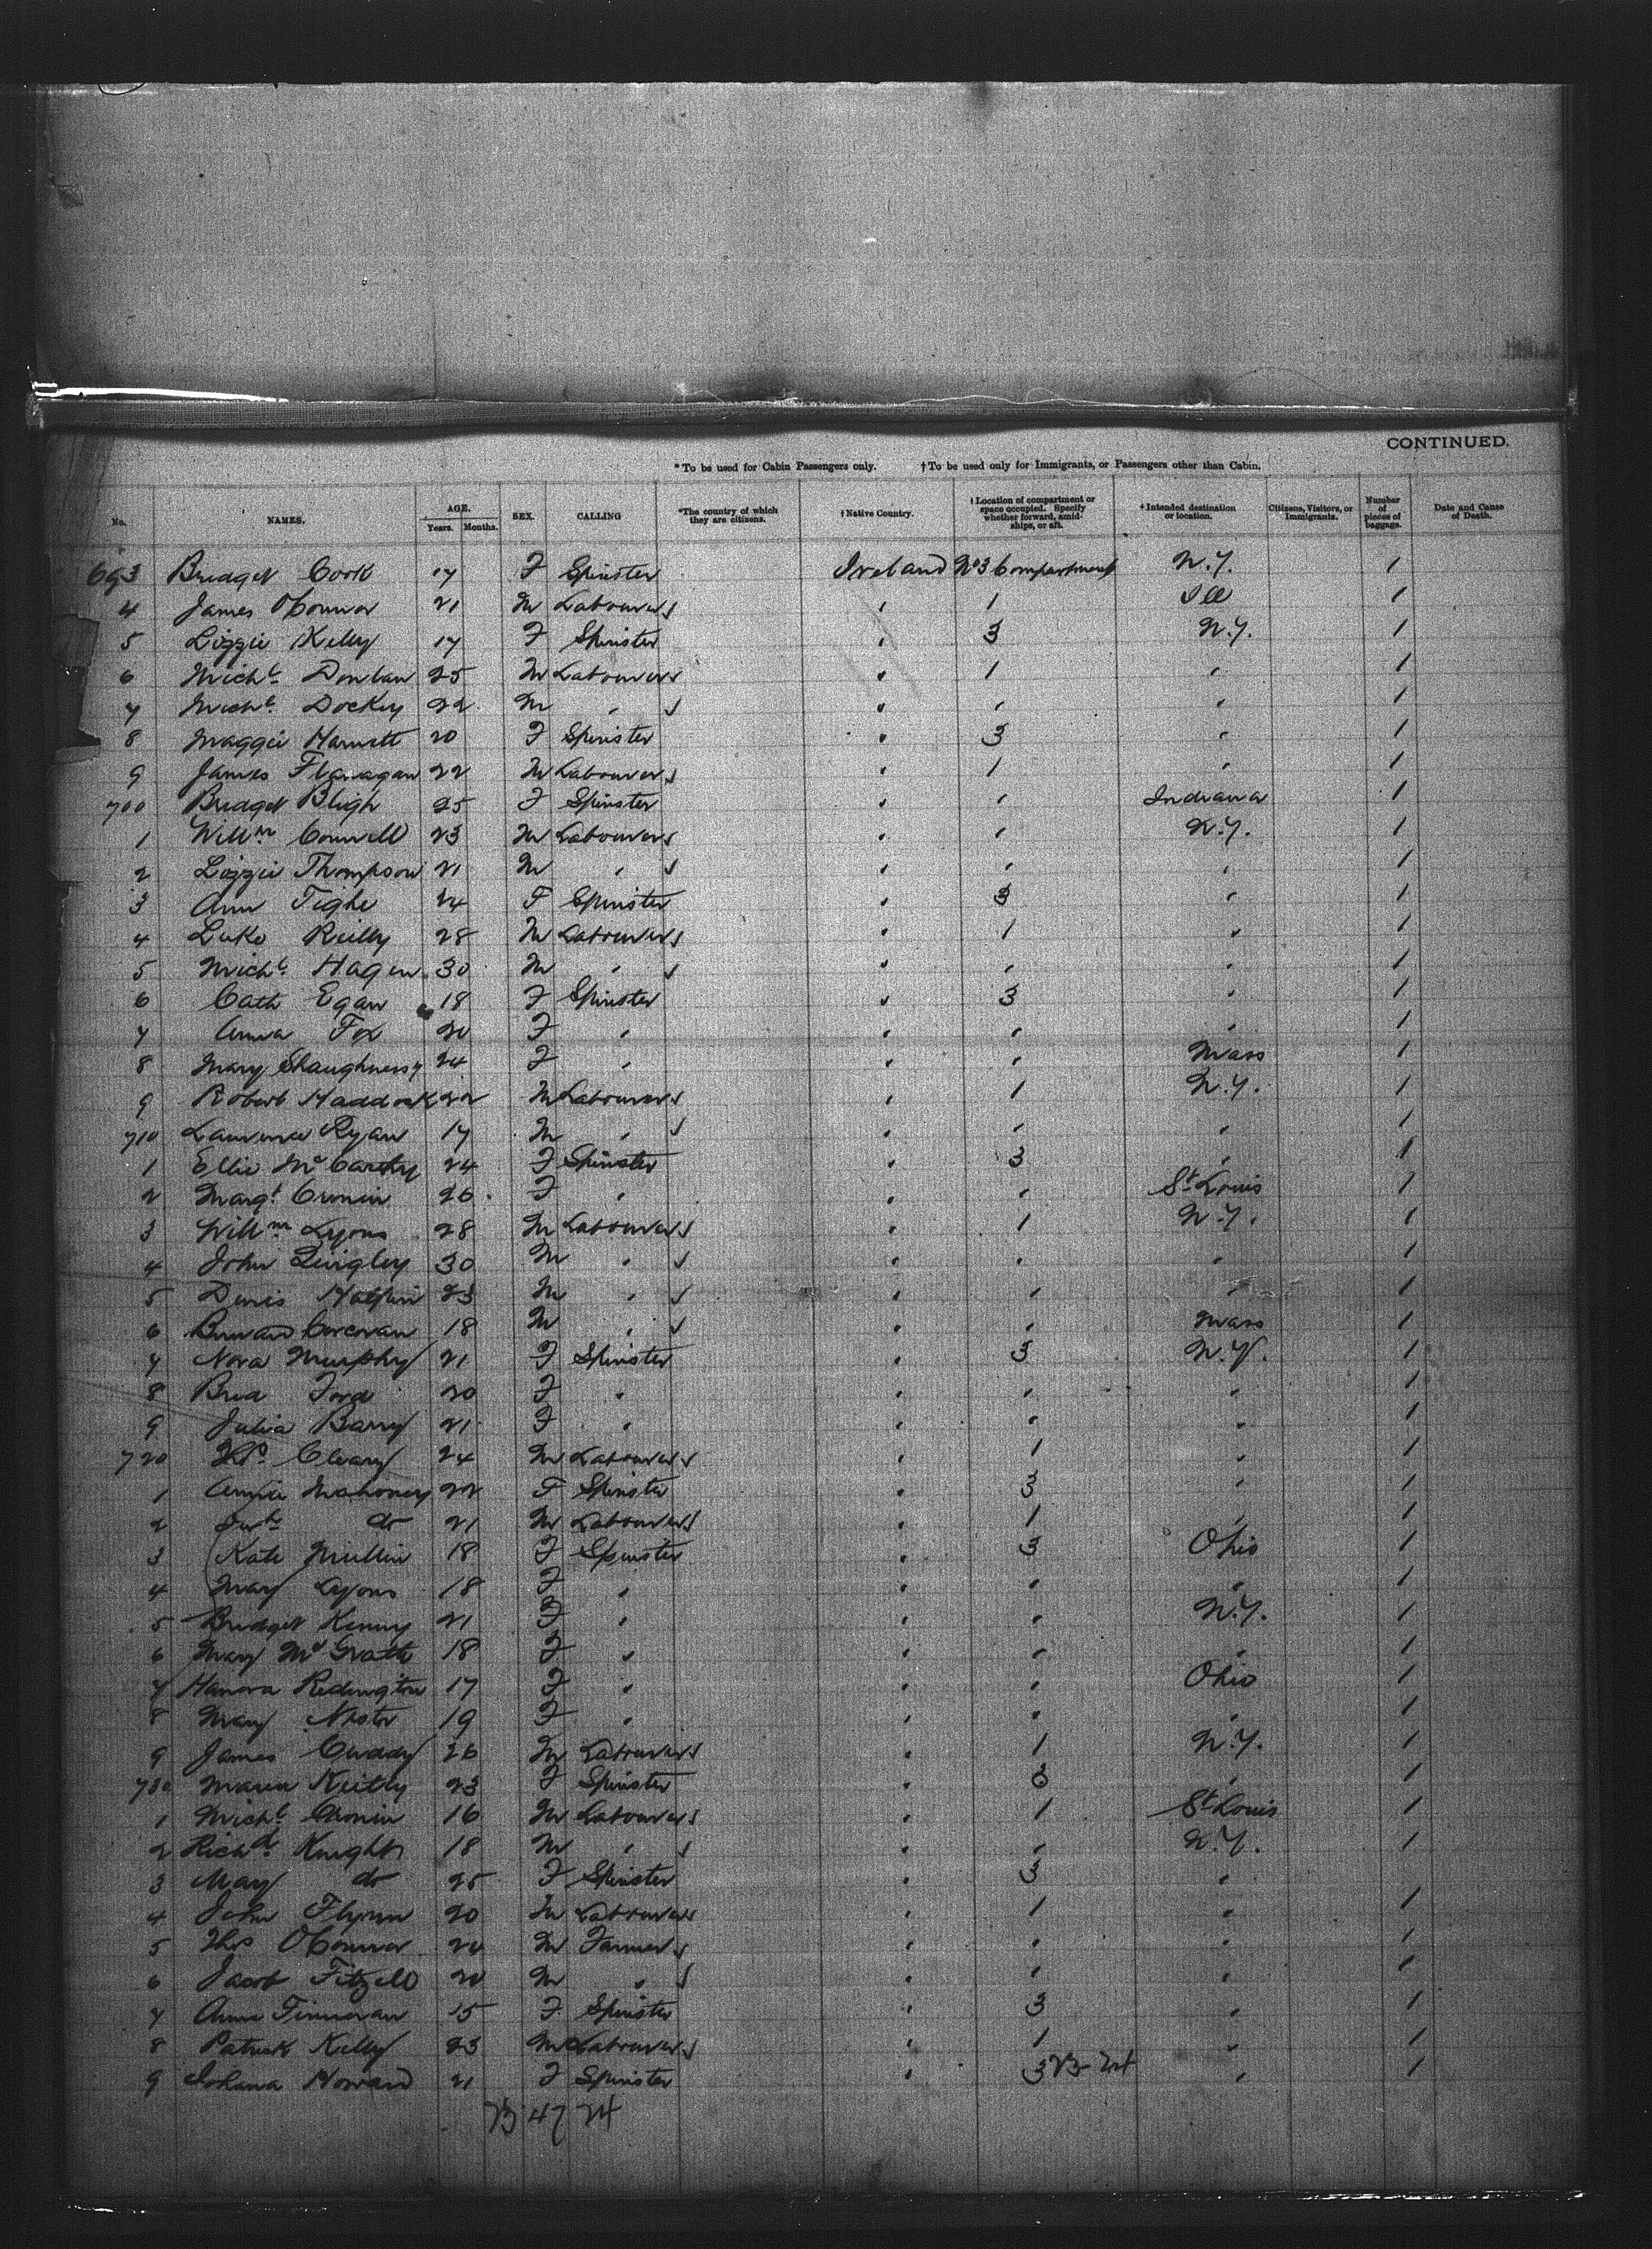 CONTINUED.
*To be used for Cabin Passengers only. †To be used only for Immigrants, or Passengers other than Cabin.
No. NAMES. AGE. Years. Months. SEX. CALLING *The country of which they are citizens. †Native Country. †Location of compartment or space occupied. Specify whether forward, amidships, or aft. †Intended destination or location. Citizens, Visitors, or Immigrants. Number of pieces of baggage. Date and Cause of Death.
693 Bridget Cook 17 F Spinster Ireland No 3 Compartment N.Y. 1
4 James OConnor 21 M Labourers " 1 Ill 1
5 Lizzie Kelly 17 F Spinster " 3 N.Y. 1
6 Michl Donlan 25 M Labourers " 1 " 1
7 Michl Dockey 22 M " " " " 1
8 Maggie Harnett 20 F Spinster " 3 " 1
9 James Flanagan 22 M Labourers " 1 " 1
700 Bridget Bligh 25 F Spinster " " Indiana 1
1 Willm Connell 23 M Labourers " " N.Y. 1
2 Lizzie Thompson 21 M " " " " 1
3 Ann Tighe 24 F Spinster " 3 " 1
4 Luke Reilly 28 M Labourers " 1 " 1
5 Michl Hagen 30 M " " " " 1
6 Cath Egan 18 F Spinster " 3 " 1
7 Anna Fox 20 F " " " " 1
8 Mary Shaughnessy 24 F " " " Mass 1
9 Robert Haddock 22 M Labourers " 1 N.Y. 1
710 Laurence Ryan 17 M " " " " 1
1 Ellie McCarthy 24 F Spinster " 3 " 1
2 Margt Cronin 26 F " " " St Louis 1
3 Willm Lyons 28 M Labourers " 1 N.Y. 1
4 John Quigley 30 M " " " " 1
5 Denis Halpin 23 M " " " " 1
6 Bernard Corcoran 18 M " " " Mass 1
7 Nora Murphy 21 F Spinster " 3 N.Y. 1
8 Brid Ford 20 F " " " " 1
9 Julia Barry 21 F " " " " 1
720 Cleary 24 M Labourers " 1 " 1
1 Annie Mahoney 22 F Spinster " 3 " 1
2 do 21 M Labourers " 1 " 1
3 Kate Mullin 18 F Spinster " 3 Ohio 1
4 Mary Lyons 18 F " " " " 1
5 Bridget Kenny 21 F " " " N.Y. 1
6 Mary McGrath 18 F " " " " 1
7 Hanora Redington 17 F " " " Ohio 1
8 Mary Nestor 19 F " " " " 1
9 James Cuddy 26 M Labourers " 1 N.Y. 1
730 Maria Keilly 23 F Spinster " 3 " 1
1 Michl Cronin 16 M Labourers " 1 St Louis 1
2 Richd Knight 18 M " " " N.Y. 1
3 Mary do 25 F Spinster " 3 "
4 John Flynn 20 M Labourers " 1 " 1
5 Thos OConnor 20 M Farmers " " " 1
6 Jacob Fitzell 20 M " " " " 1
7 Anne Finneran 15 F. Spinster " 3 " 1
8 Patrick Kelly 23 M Labourers " 1 " 1
9 Johana Howard 21 F Spinster " 3 " 1
47 24